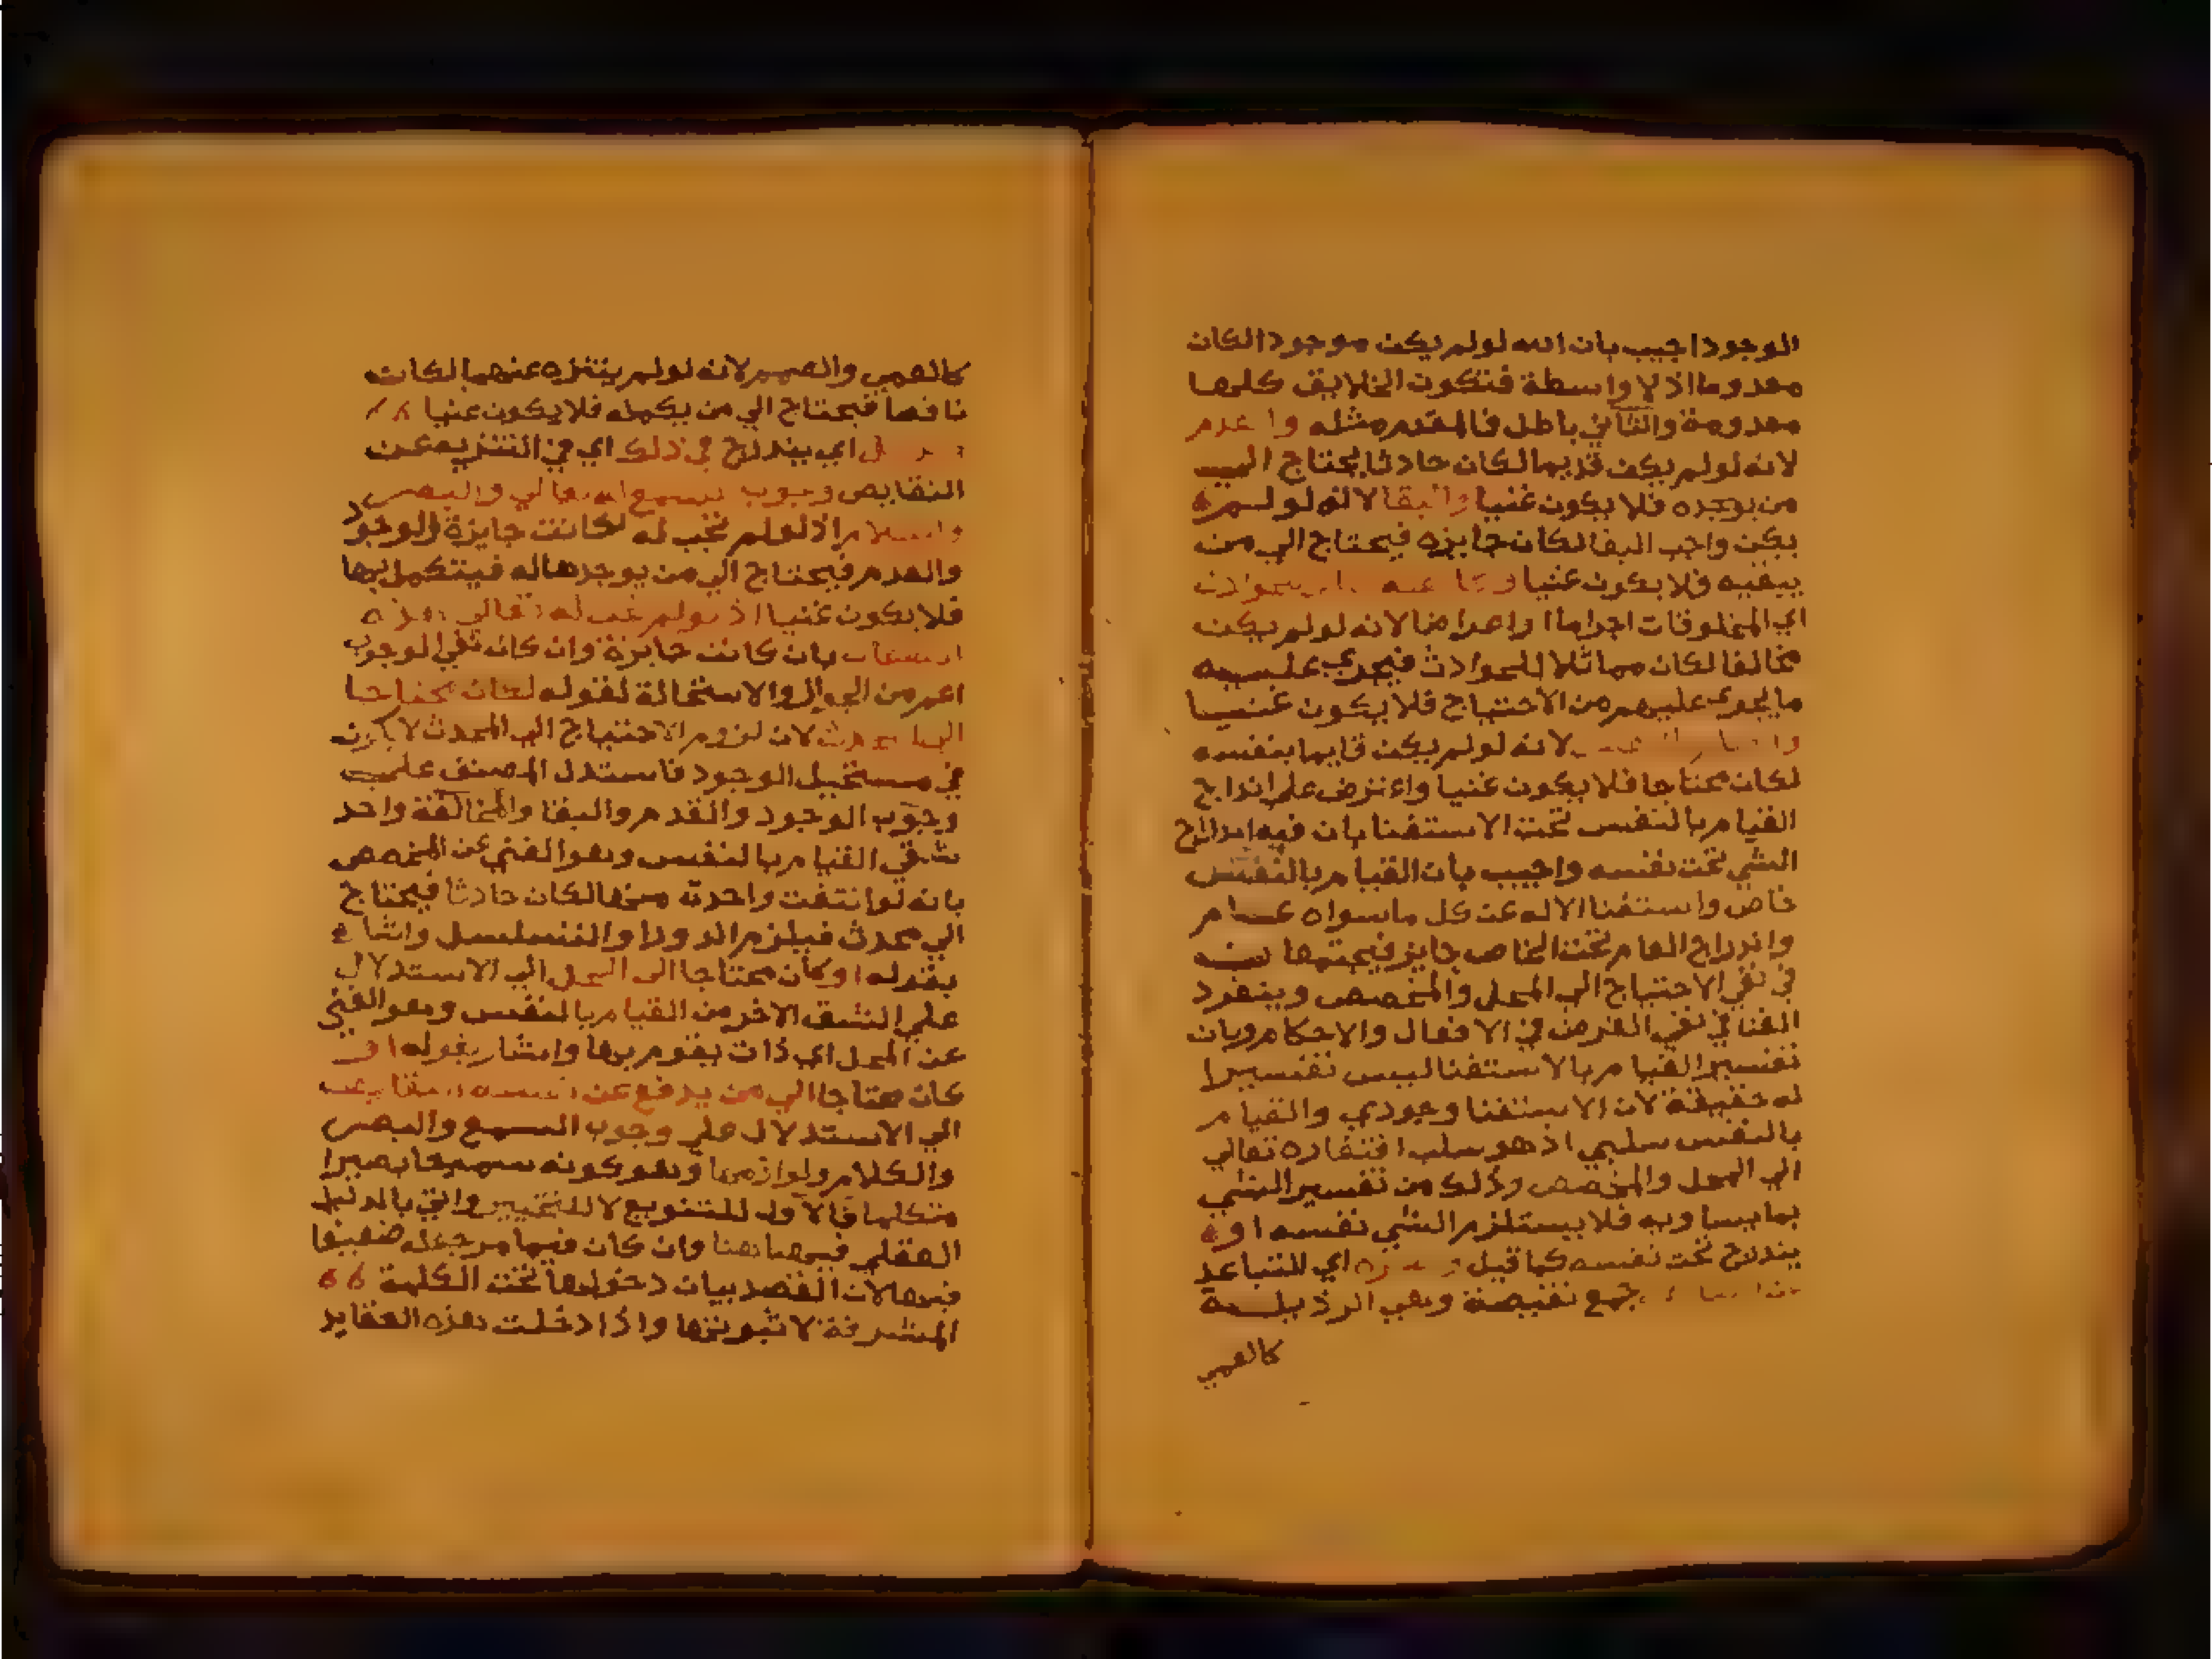 الوجود اجيب بان الله لولم يكن موجودا لكان
معدوما اذ لا واسطة فتكون الخلايق كلها
معدومة والتالي باطل فالمقدم مثله والقدم
لانه لولم يكن قديما لكان حادثا يحتاج الي
من يوجده فلا يكون غنيا والبقا لانه لو لم
يكن واجب البقا لكان جايزه فيحتاج الي من
يبقيه فلا يكون غنيا للحوادث
اي المخلوقات اجراما واعراضا لانه لولم يكن
مخالفا لكان مماثلا للحوادث فيجري عليه
ما يجري عليهم من الاحتياج فلا يكون غنيا
لانه لولم يكن قايما بنفسه
لكان محتاجا فلا يكون غنيا واعترض علي اندراج
القيام بالنفس تحت الاستغنا بان فيه اندراج
الشي تحت نفسه واجيب بان القيام بالنفس
خاص واستغنا الاله عن كل ما سواه عام
واندراج العام تحت الخاص جايز فيجتمعا ن
في نفي الاحتياج الي المحل والمخصص وينفرد
الغنا في نفي الغرض في الافعال والاحكام وبان
تفسير القيام بالاستغنا ليس تفسيرا
له حقيقة لان الاستغنا وجودي والقيام
بالنفس سلبي اذ هو سلب افتقاره تعالي
الي المحل والمخصص وذلك من تفسير الشي
بما يساويه فلا يستلزم الشي نفسه او
يندرج تحت نفسه كما قيل اي التباعد
جمع نقيصة وهي الرذيلة
كالعمي
كالعمي والصمم لانه لولم يتنزه عنهما لكان
ناقصا فيحتاج الي من يكمله فلا يكون غنيا
اي يندرج في ذلك اي في التنزيه عن
النقايص وجوب السمع له تعالي والبصر
والكلام اذ لولم تجب له لكانت جايزة الوجود
والعدم فيحتاج الي من يوجدها له فيتكمل بها
فلا يكون غنيا اذ لولم تجب له تعالي هذه
الصفات بان كانت جايزة وان كان نفي الوجوب
اعم من الجواز والاستحالة لقوله لكان محتاجا
الي المحدث لان لزوم الاحتياج الي المحدث لا يكون
في مستحيل الوجود فاستدل المصنف علي
وجوب الوجود والقدم والبقا والمخالفة واحد
شقي القيام بالنفس وهو الغني عن المخصص
بانه لو انتفت واحدة منها لكان حادثا فيحتاج
الي محدث فيلزم الدور او التسلسل واشار
بقوله او كان محتاجا الي المحل الي الاستدلال
علي الشق الاخر من القيام بالنفس وهو الغني
عن المحل اي ذات يقوم بها واشار بقوله او
كان محتاجا الي من يدفع عن نفسه النقايص
الي الاستدلال علي وجوب السمع والبصر
والكلام ولوازمها وهو كونه سميعا بصيرا
متكلما فالاول للتنويع لا للتخيير واتي بالدليل
العقلي فيها هنا وان كان فيما مر جعله ضعيفا
فيها لان القصد بيان دخولها تحت الكلمة
المشرفة لا ثبوتها واذا دخلت هذه العقايد